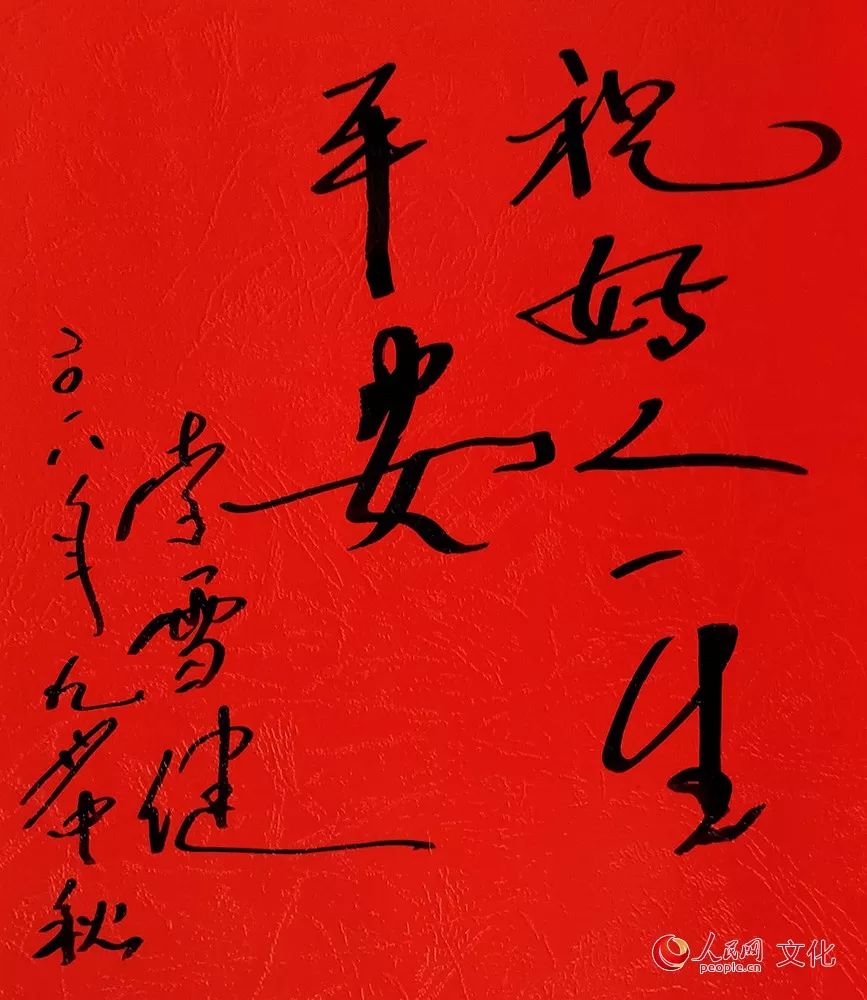 祝好人一生
平安
李雪健
二〇一八年九岁中秋
人民网 文化
people.cn